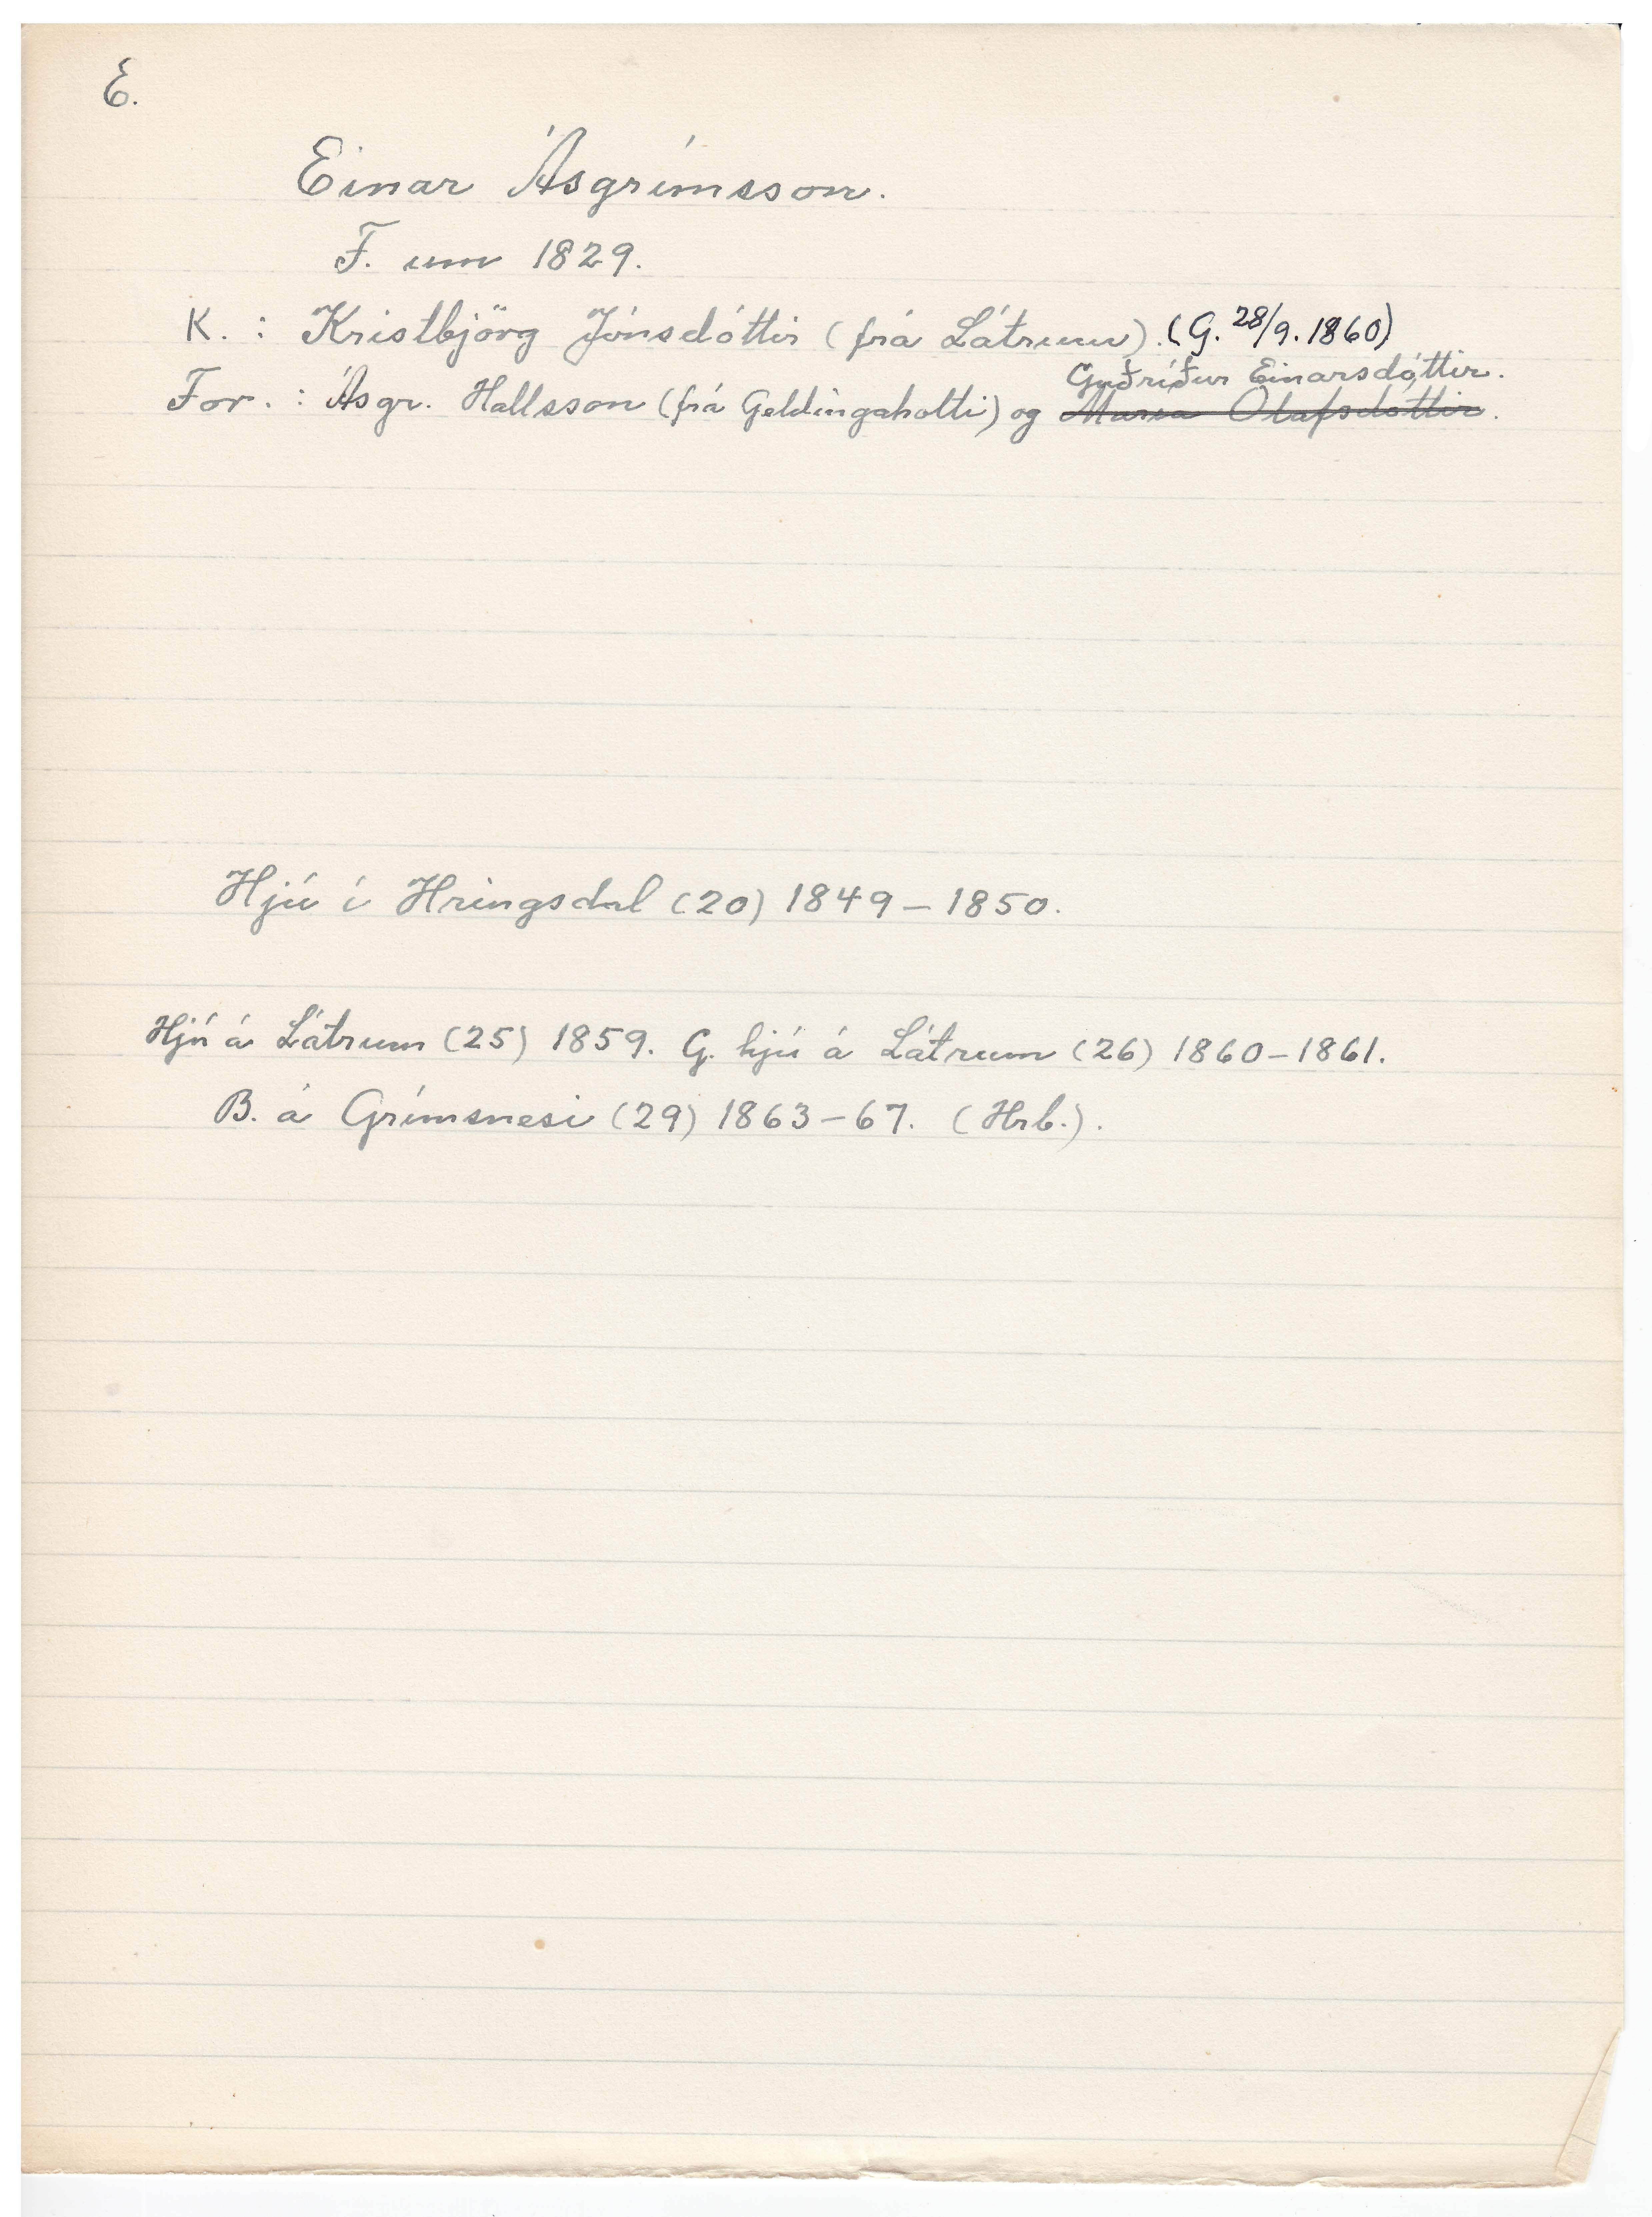 E.
Einar Ásgrímsson.
F. um 1829.
K. : Kristbjörg Jónsdóttir (frá Látrum). (G. 28/9. 1860)
Guðríður Einarsdóttir.
For. : Ásgr. Hallsson (frá Geldingaholti) og María Ólafsdóttir.
Hjú í Hringsdal (20) 1849 – 1850.
Hjú á Látrum (25) 1859. G. hjú á Látrum (26) 1860–1861.
B. á Grímsnesi (29) 1863–67. (Hrb.).